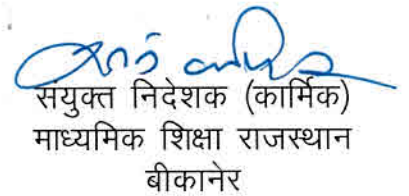 संयुक्त निदेशक (कार्मिक)
माध्यमिक शिक्षा राजस्थान
बीकानेर